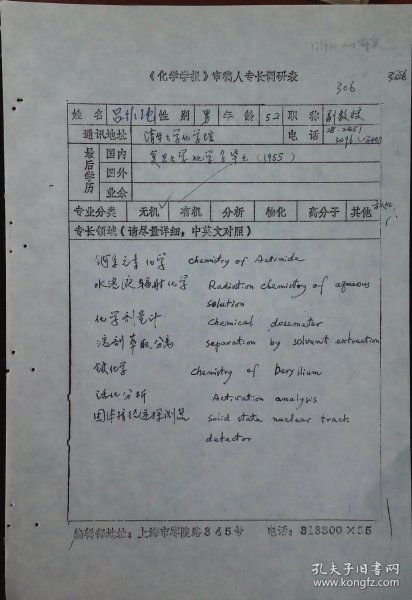 《化学学报》审稿人专长调研表
306
姓名 吕维纯 性别 男 年龄 52 职称 副教授
通讯地址 清华大学化学馆 电话 282451
最后学历 国内 复旦大学化学系毕业 (1955)
国外
业余
专业分类 无机 有机 分析 物化 高分子 其他
专长领域(请尽量详细,中英文对照)
锕系元素化学 chemistry of Actinida
水溶液辐射化学 Radiation chemistry of aqueous
solution
化学剂量计 Chemical dosemeter
溶剂萃取分离 separation by solvent extraction
铍化学 chemistry of Beryllium
活化分析 Activation analysis
固体核径迹探测器 solid state nuclear track
detector
编辑部地址:上海市零陵路345号 电话:313300×55
孔夫子旧书网
www.kongfz.com